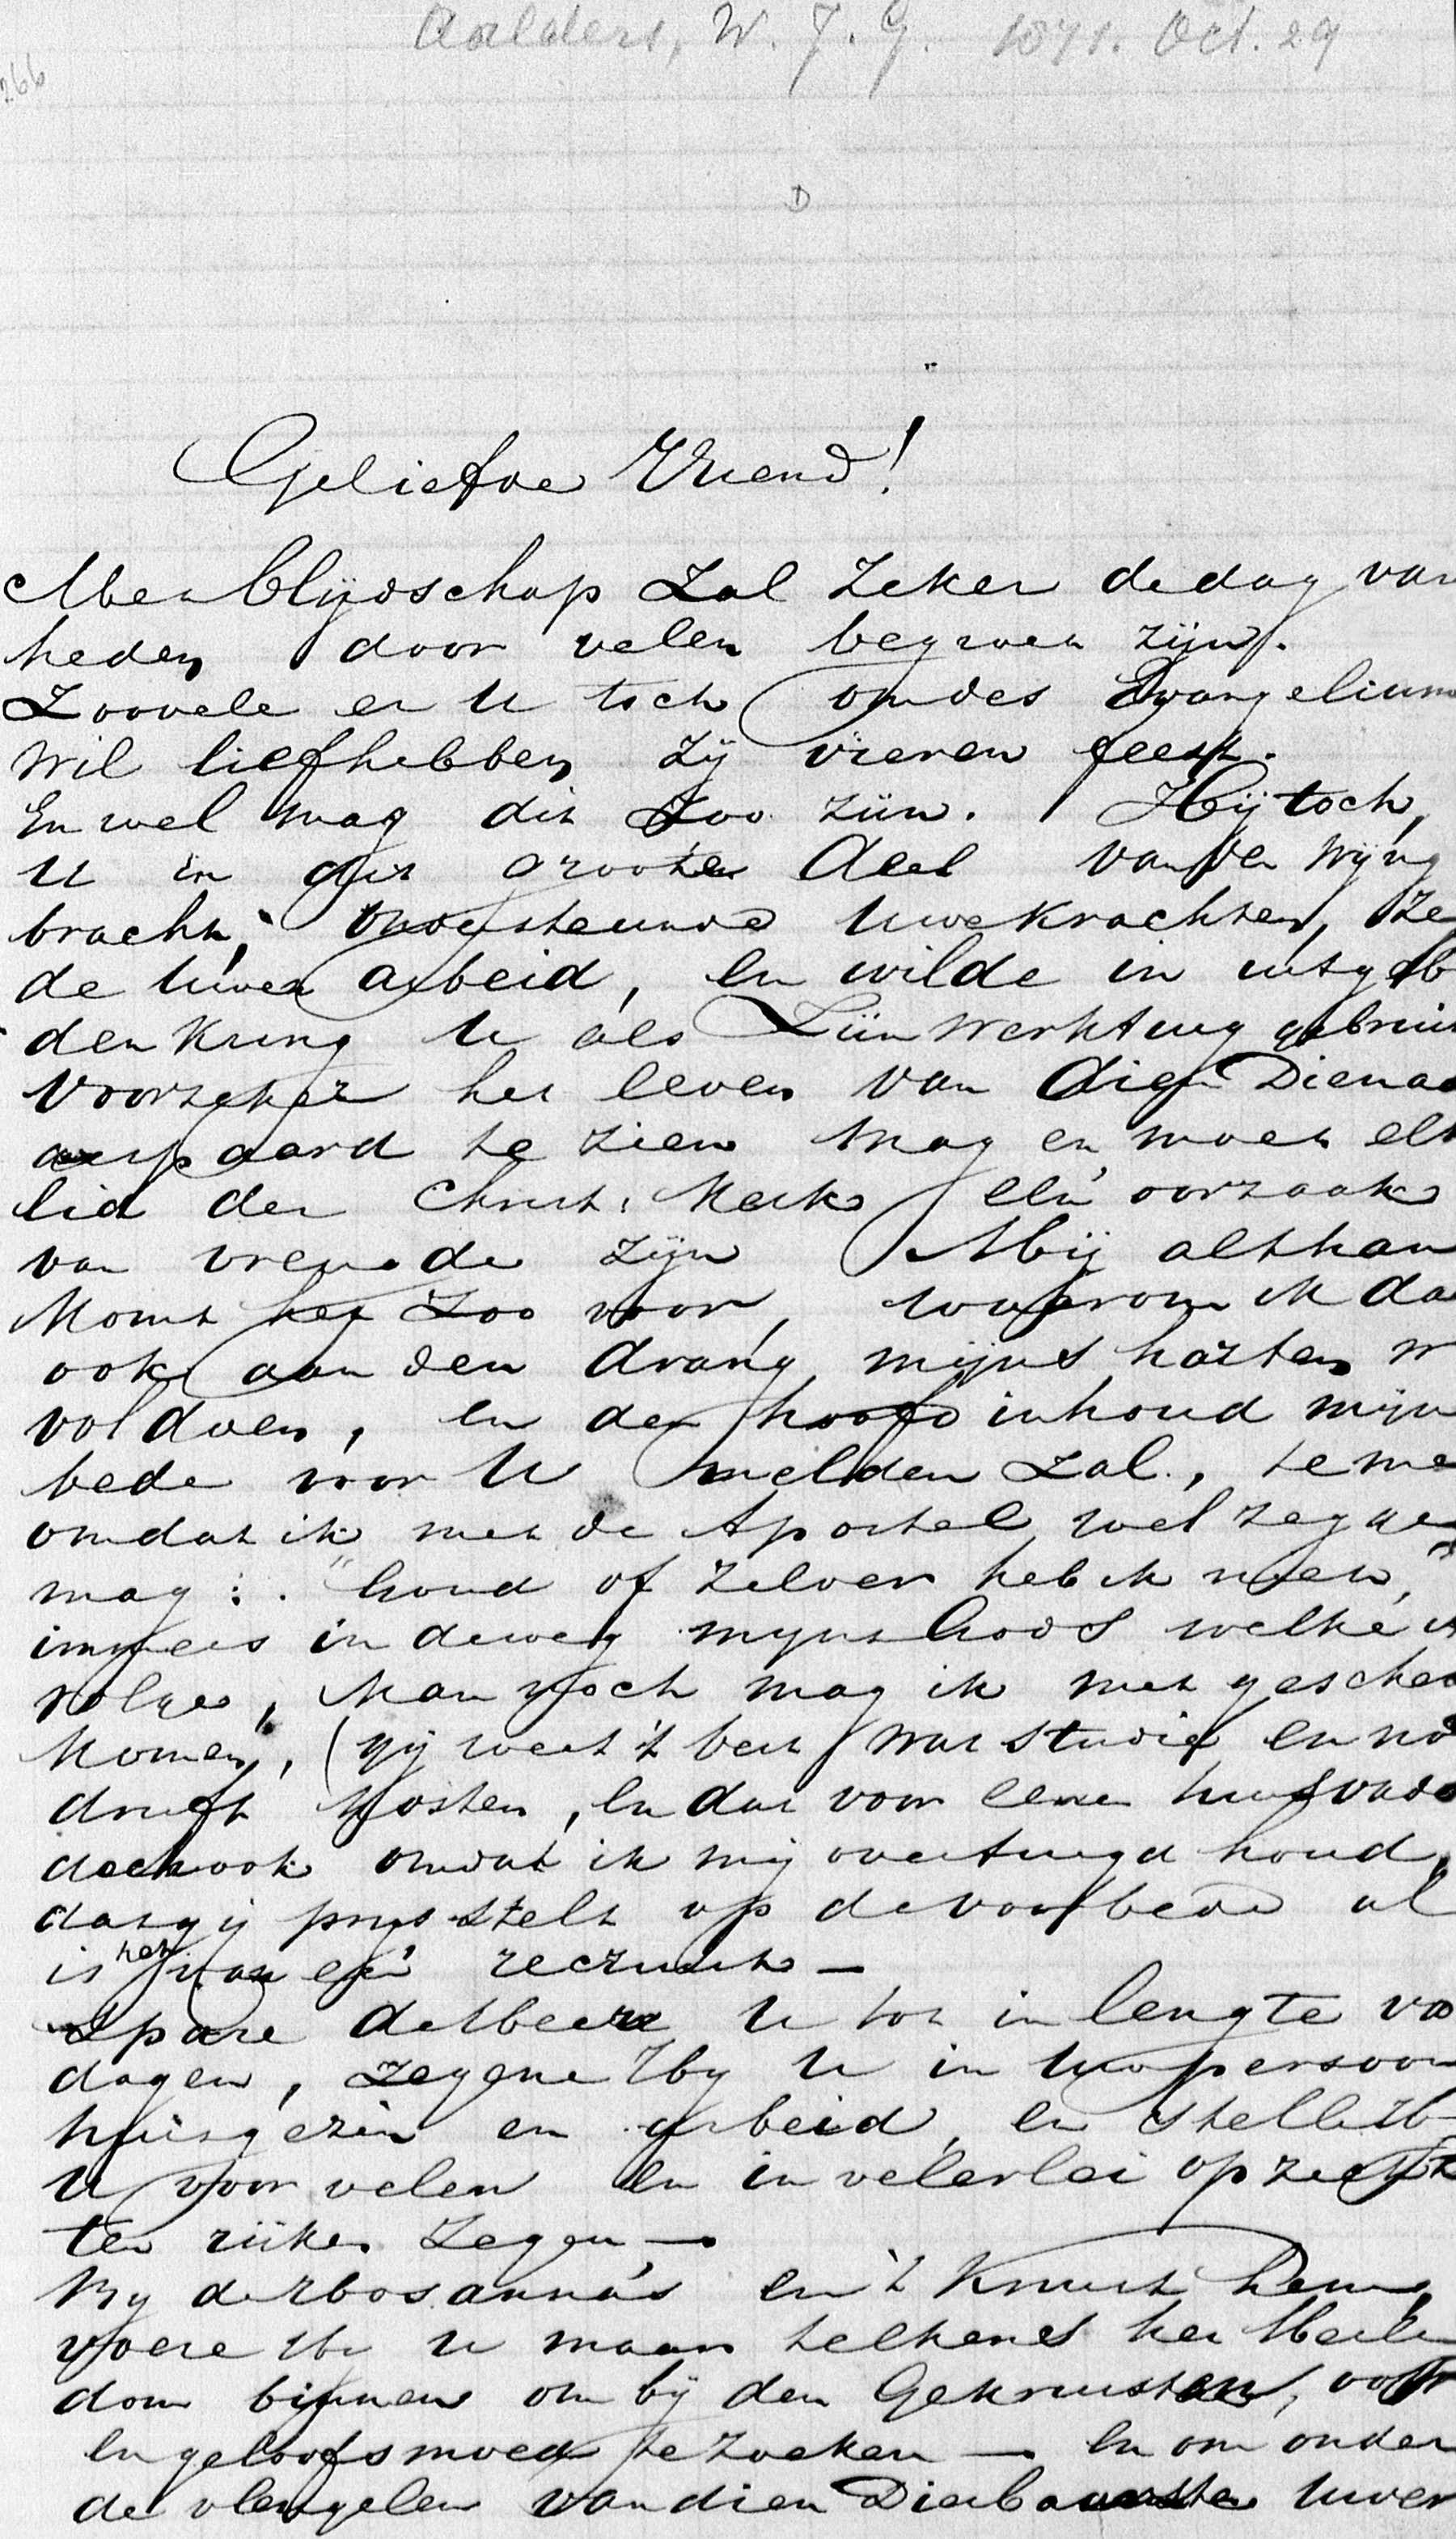 Aalders, W. J. G. 1871. Oct. 29
266
D
Geliefde Vriend!
Met blijdschap zal zeker de dag van
heden door velen begroet zijn.
Zoovele er U toch om des Evangeliums
wil liefhebben zij vieren feest.
En wel mag dit zoo zijn. Hij toch,
U in dit grooten deel van den Wijng
bracht, ondersteunde Uwe krachten, ze
de Uwen arbeid, en wilde in uitgeb
den kring U als Zijn werktuig gebrui
Voorzeker het leven van dien Diena
gespaard te zien mag en moet elk
lid der Christ. Kerk een oorzaak
van vreugde zijn Mij althan
komt het zoo voor, waarom ik da
ook aan den drang mijns harten w
voldoen, en den hoofd inhoud mijn
bede voor U melden zal, te me
omdat ik met de Apostel wel zegge
mag: "Goud of zilver heb ik niet,"
immers in de weg mijns Gods welke ik
volge, kan noch mag ik met gesche
komen, (gij weet 't best wat studie en no
druft kosten, en dat voor eene huisvade
doch ook omdat ik mij overtuigd houd,
dat gij prijs stelt op de voorbede al
is het van een
Spare de Heere U tot in lengte va
dagen, zegene Hij U in Uw persoon
huisgezin en arbeid, en stelle H
U voor velen en in velerlei opzicht
ten rijken zegen —
Bij de Hosanna's en 't Kruist Hem,
voere Hij U maar telkens het Heilig
dom binnen om bij den Gekruisten,
en geloofsmoed te zoeken — en om onder
de vleugelen van dien Dierbaarste Uwer